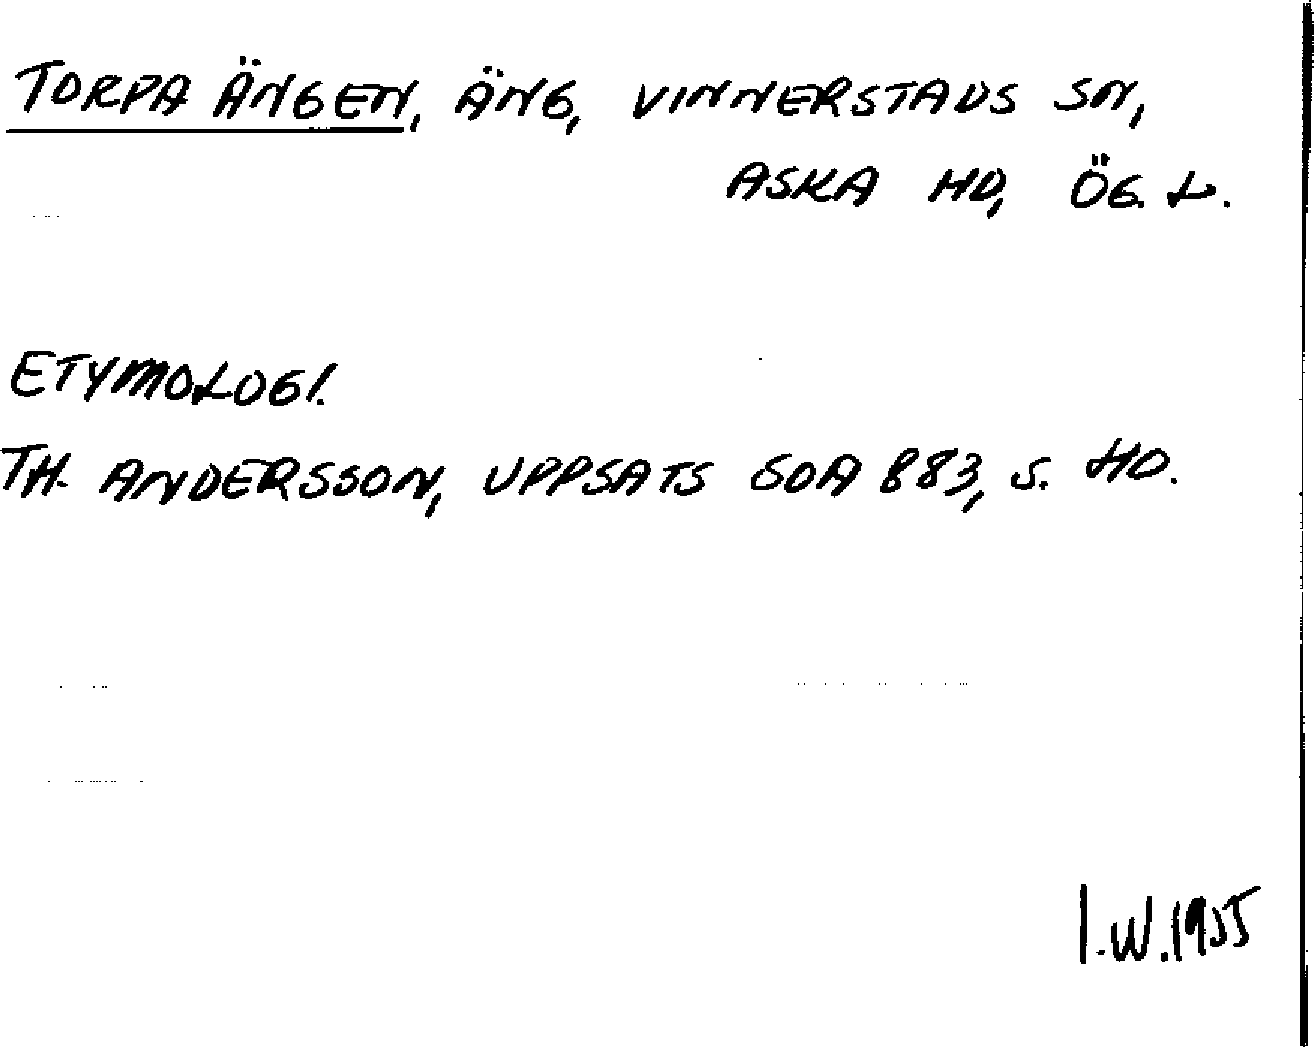 TORPA ÄNGEN, ÄNG, VINNERSTADS SN,
ASKA HD, ÖG. L.
ETYMOLOGI.
TH. ANDERSSON, UPPSATS SOA 883, S. 40.
I.W.1955